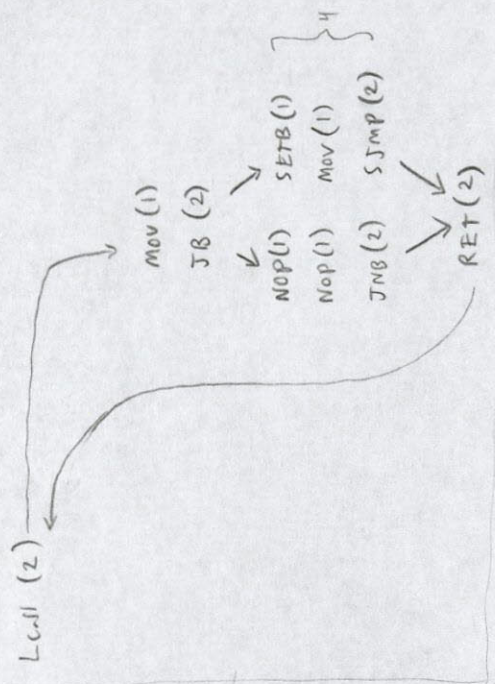 Lcall (2)
MOV (1)
JB (2)
NOP(1) SETB(1)
NOP(1) MOV(1) 4
JNB(2) SJMP(2)
RET(2)